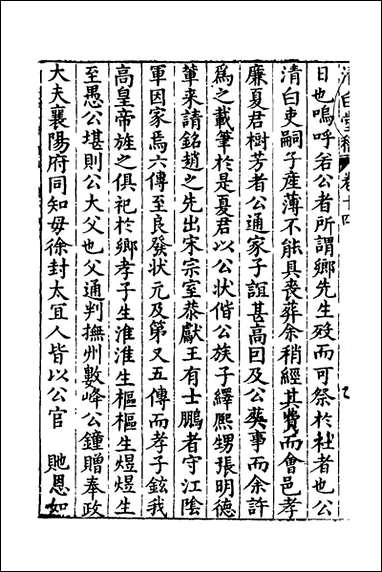 清白堂稿 卷十四
日也嗚呼若公者所謂鄉先生歿而可祭於社者也公
清白吏嗣子產薄不能具喪葬余稍經其費而會邑孝
廉夏君樹芳者公通家子誼甚高曰及公葬事而余許
為之載筆於是夏君以公狀偕公族子繹熈甥張明德
輩來請銘趙之先出宋宗室恭獻王有士鵬者守江陰
軍因家焉六傳至良發狀元及第又五傳而孝子鉉我
高皇帝旌之俱祀於鄉孝子生淮淮生樞樞生煜煜生
至愚公堪則公大父也父通判撫州數峰公鐘贈奉政
大夫襄陽府同知毋徐封太宜人皆以公官 貤恩如